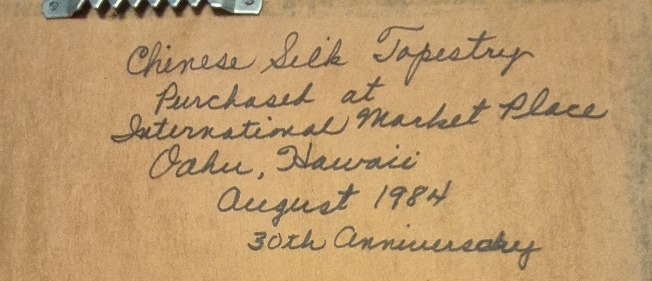 Chinese Silk Tapestry
Purchased at
International Market Place
Oahu, Hawaii
August 1984
30th Anniversary